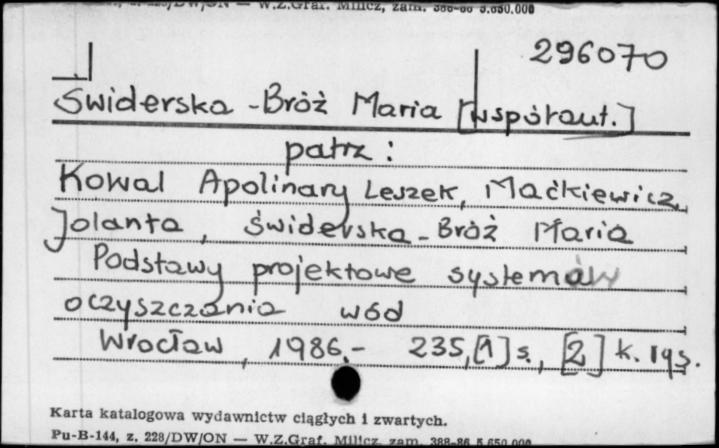 W.Z.Graf. Milicz, zam. 388-86 5.650.000
296070
Świderska-Bróż Maria [współaut.]
patrz:
Kowal Apolinary Leszek, Maćkiewicz
Jolanta, Świderska-Bróż Maria
Podstawy projektowe systemów
oczyszczania wód
Wrocław, 1986.- 235,[1] s., [2] k. rys.
Karta katalogowa wydawnictw ciągłych i zwartych.
Pu-B-144, z. 228/DW/ON — W.Z.Graf. Milicz, zam. 388-86 5.650.000